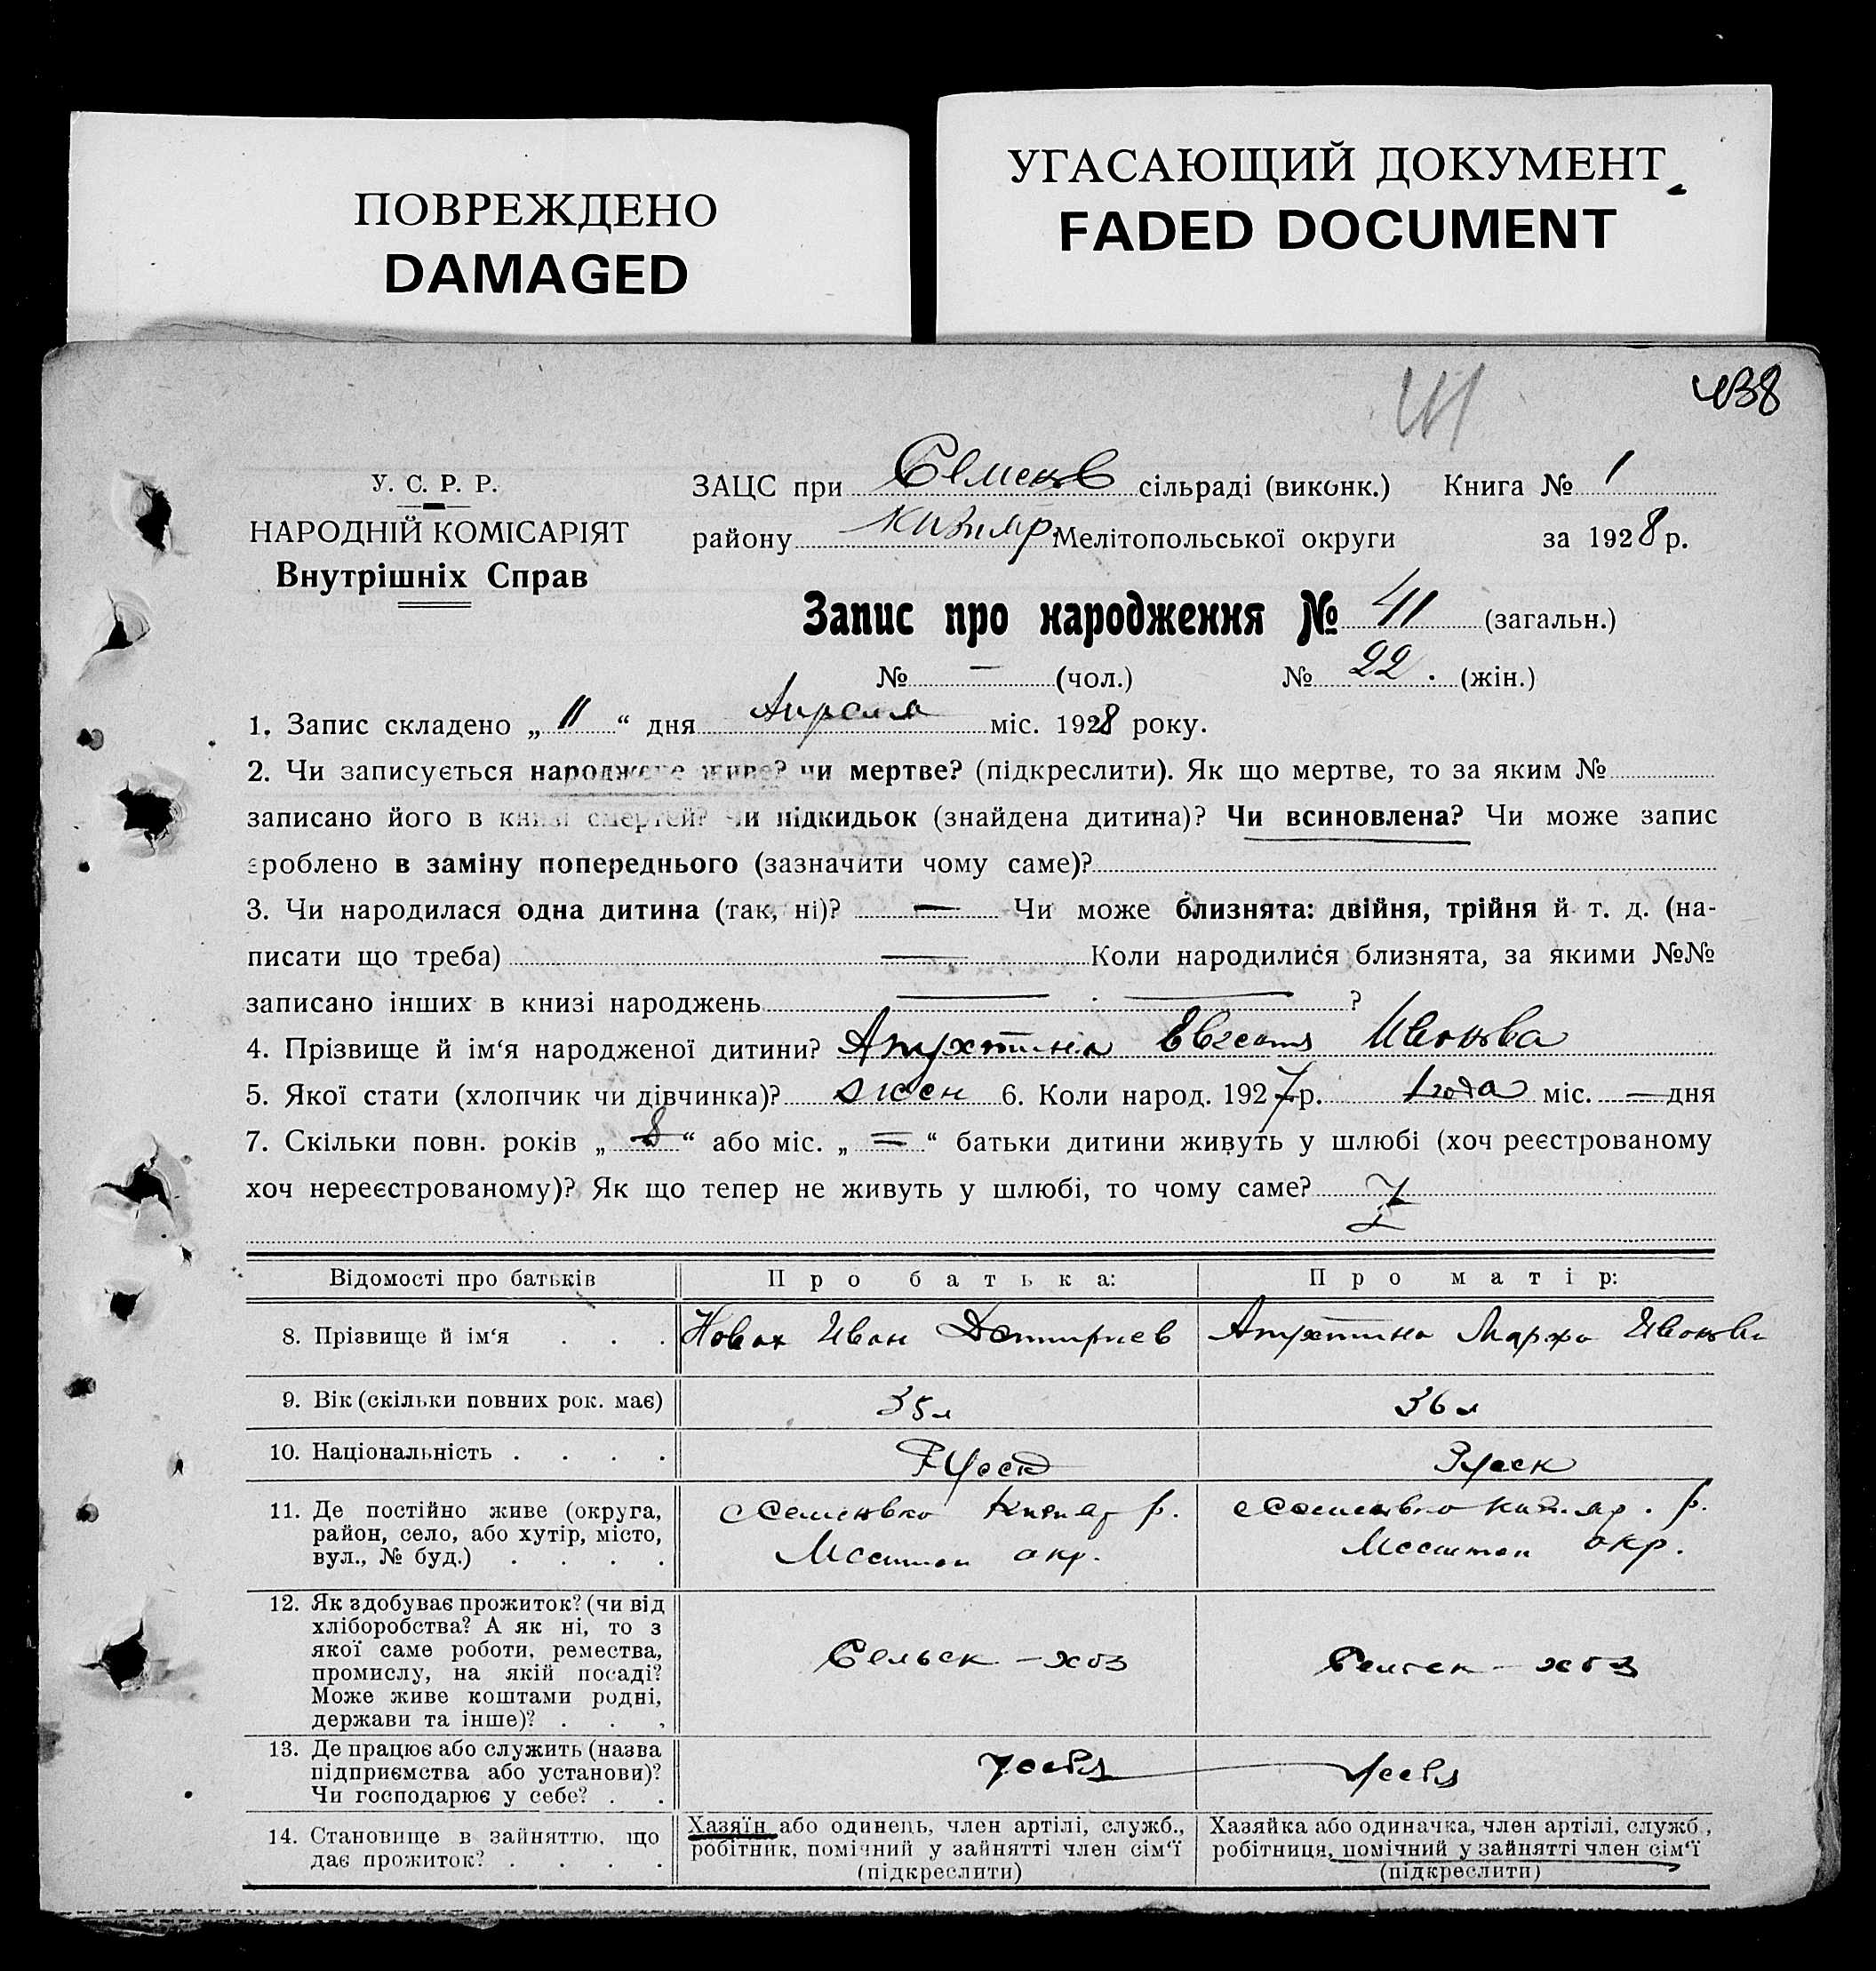 ПОВРЕЖДЕНО
DAMAGED
УГАСАЮЩИЙ ДОКУМЕНТ
FADED DOCUMENT
41
438
У. С. Р. Р.
НАРОДНІЙ КОМІСАРІЯТ
Внутрішніх Справ
ЗАЦС при Семенов сільраді (виконк.) Книга № 1
району Кизияр Мелітопольської округи за 1928 р.
Запис про народження № 41 (загальн.)
№ — (чол.) № 22. (жін.)
1. Запис складено „11“ дня Апреля міс. 1928 року.
2. Чи записується народжене живе? чи мертве? (підкреслити). Як що мертве, то за яким №
записано його в книзі смертей? Чи підкидьок (знайдена дитина)? Чи всиновлена? Чи може запис
зроблено в заміну попереднього (зазначити чому саме)?
3. Чи народилася одна дитина (так, ні)? — Чи може близнята: двійня, трійня й т. д. (на-
писати що треба) — Коли народилися близнята, за якими №№
записано інших в книзі народжень — — ?
4. Прізвище й ім‘я народженої дитини? Апухтина Евгения Иванова
5. Якої стати (хлопчик чи дівчинка)? жен 6. Коли народ. 1927 р. 1 года міс. — дня
7. Скільки повн. років „8“ або міс. „=“ батьки дитини живуть у шлюбі (хоч реєстрованому
хоч нереєстрованому)? Як що тепер не живуть у шлюбі, то чому саме?
Відомості про батьків Про батька: Про матір:
8. Прізвище й ім‘я . . . Новах Иван Дмитриев Апухтина Марфа Иванова
9. Вік (скільки повних рок. має) 35 л 36 л
10. Національність . . . . Русск Русск
11. Де постійно живе (округа,
район, село, або хутір, місто,
вул., № буд.) . . . .
с Семеновка Кизияр р.
Мелитоп окр.
с Семеновка Кизияр. р.
Мелитоп окр.
12. Як здобуває прожиток? (чи від
хліборобства? А як ні, то з
якої саме роботи, ремества,
промислу, на якій посаді?
Може живе коштами родні,
держави та інше)? . . .
Сельск-хоз Сельск-хоз
13. Де працює або служить (назва
підприємства або установи)?
Чи господарює у себе? . .
у себя у себя
14. Становище в зайняттю, що
дає прожиток? . . . .
Хазяїн або одинець, член артілі, служб.,
робітник, помічний у зайнятті член сім‘ї
(підкреслити)
Хазяйка або одиначка, член артілі, служб.,
робітниця, помічний у зайнятті член сім‘ї
(підкреслити)